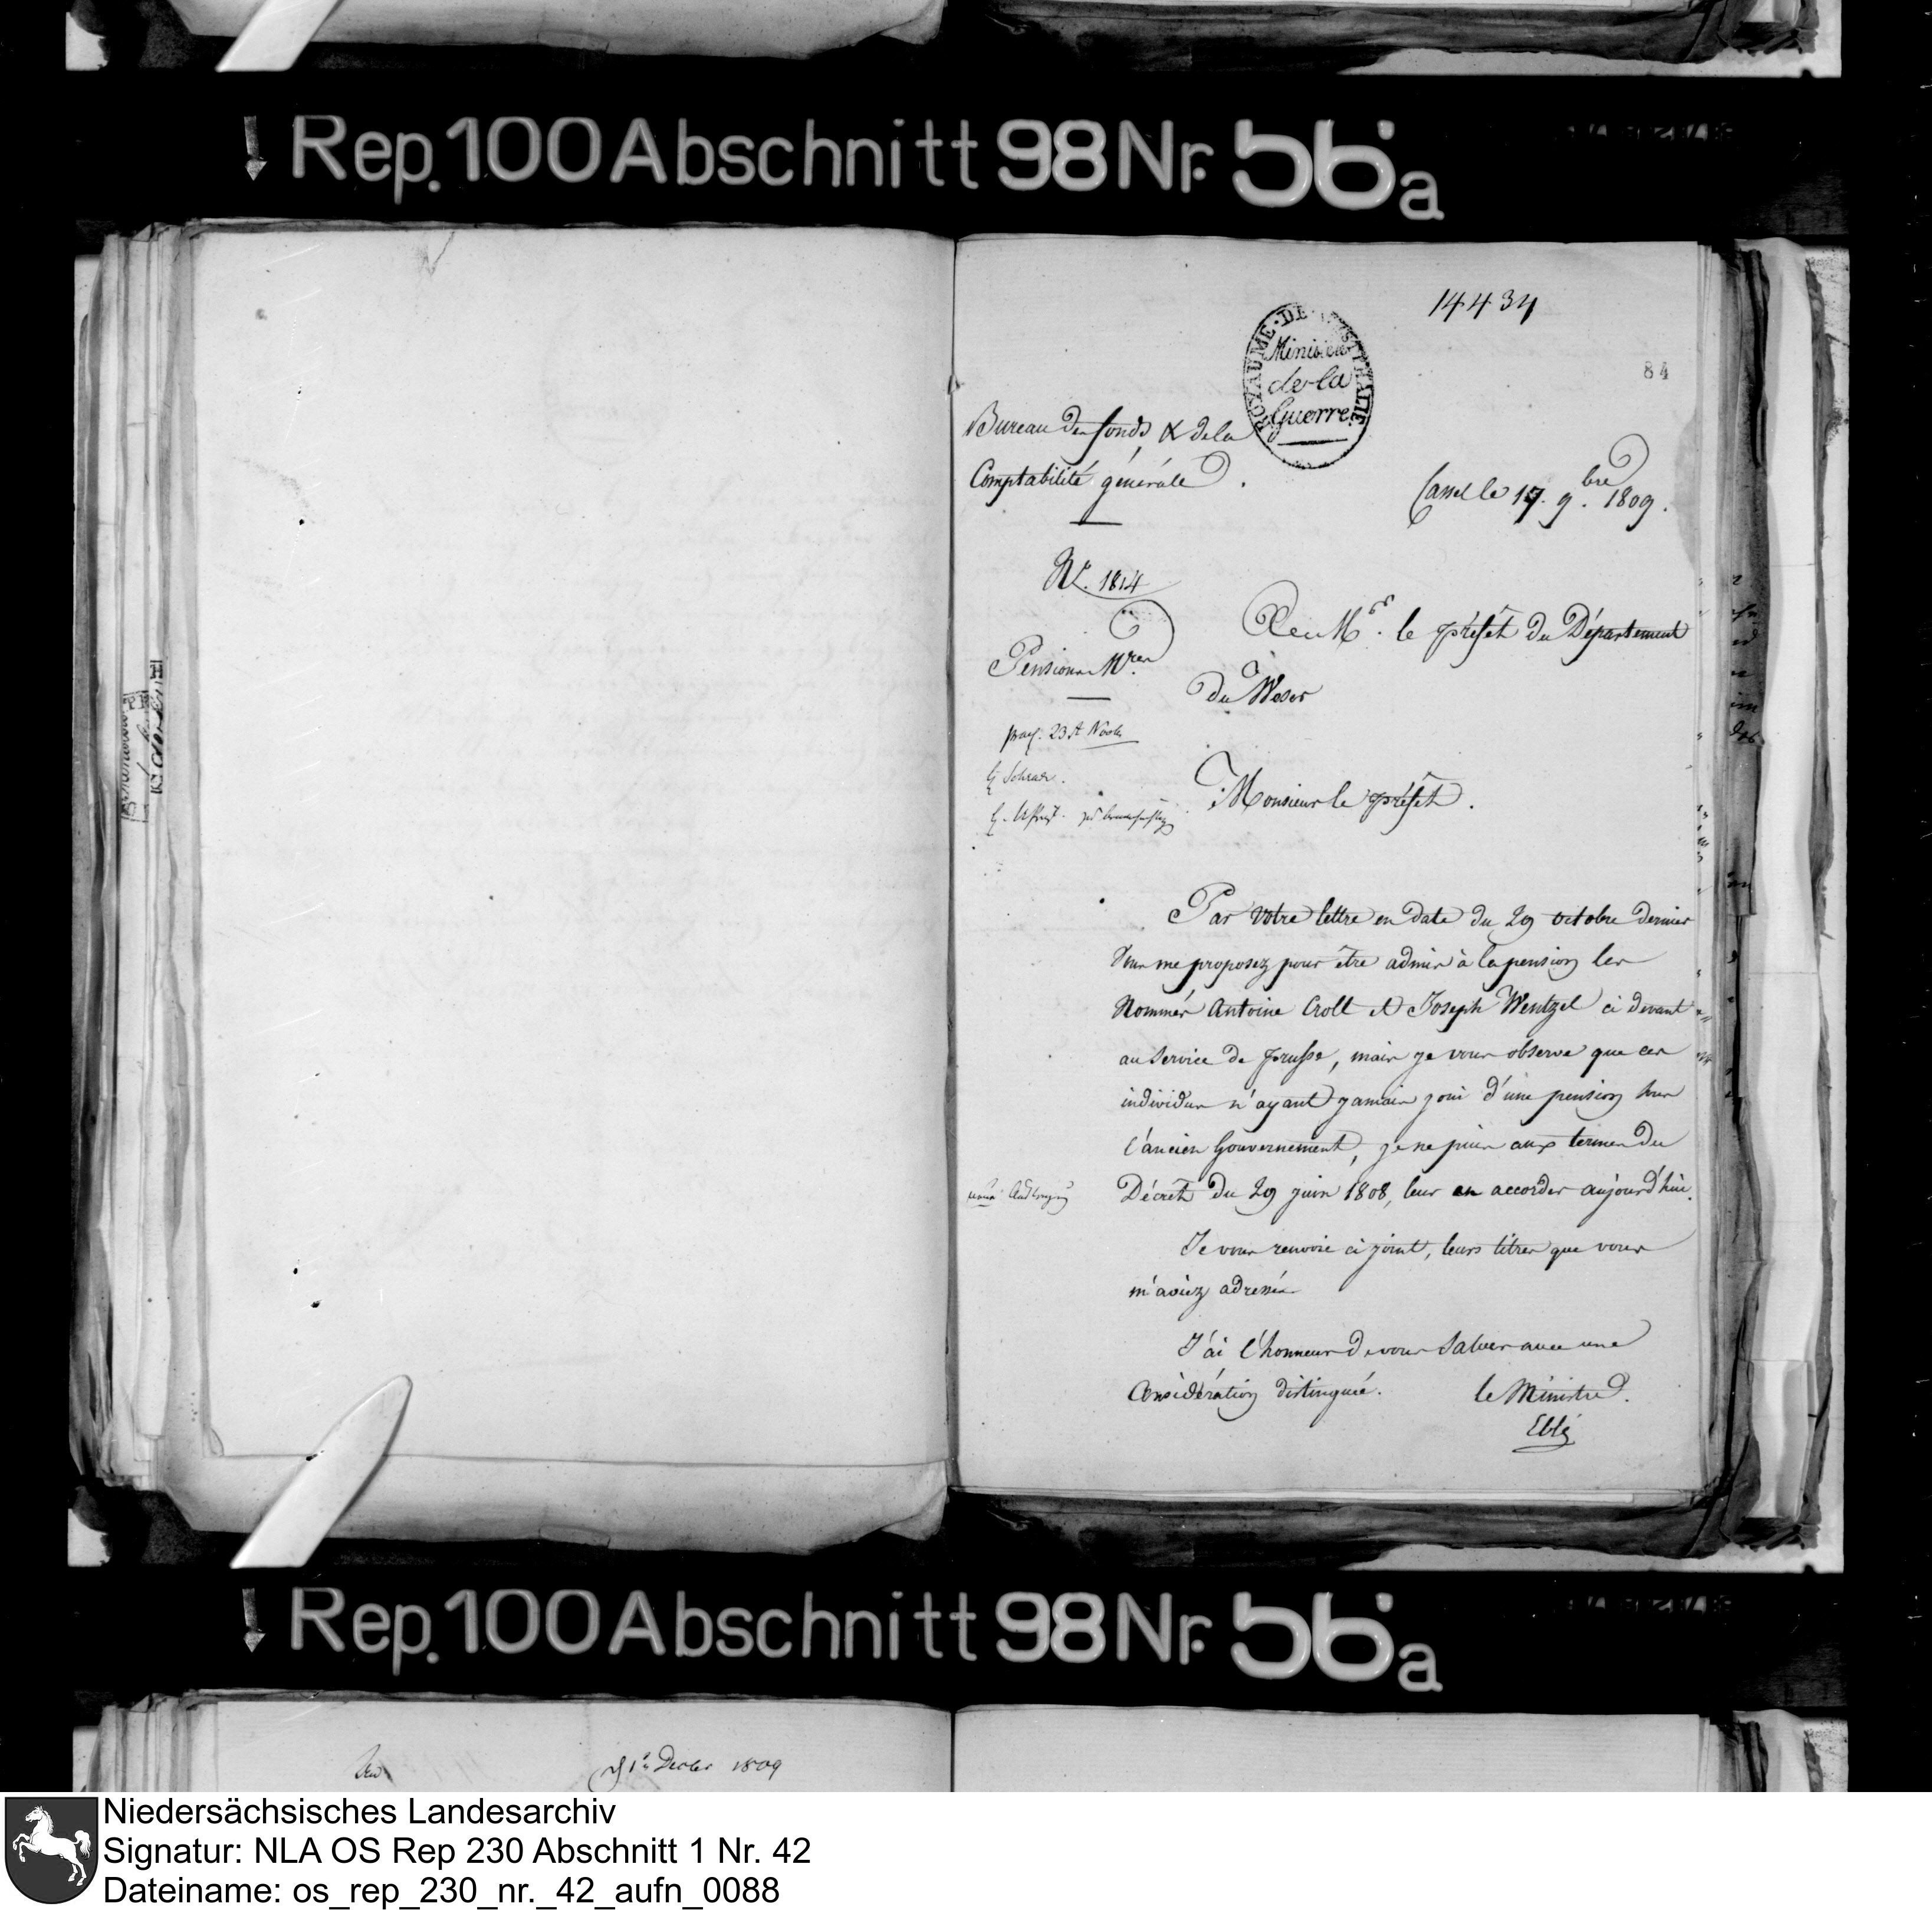 Rep. 100 Abschnitt 98 Nr. 56a
14434
84
ROYAUME DE WESTPHALIE
Ministère
de la
Guerre
Bureau des fonds & de la
Comptabilité générale.
Cassel le 17. 9.bre 1809.
Nr. 1814
A Mr. le préfet du Département
du Weser
Pensions Mres
praes. 23st Novbr
Monsieur le préfet.
Par votre lettre en date du 29 octobre dernier
Vous me proposez pour être admis à la pension les
Nommés Antoine Croll et Joseph Wentzel ci devant
au Service de prusse, mais je vous observe que ces
individus n'ayant jamais joui d'une pension sous
l'ancien Gouvernement, je ne puis aux termes du
Décret du 29 juin 1808, leur en accorder aujourd'hui.
Je vous renvoie ci joint, leurs titres que vous
m'aviez adressés
J'ai l'honneur de vous Saluer avec une
Considération distinguée.
le Ministre.
Eblé
Rep. 100 Abschnitt 98 Nr. 56a
1809
Niedersächsisches Landesarchiv
Signatur: NLA OS Rep 230 Abschnitt 1 Nr. 42
Dateiname: os_rep_230_nr._42_aufn_0088